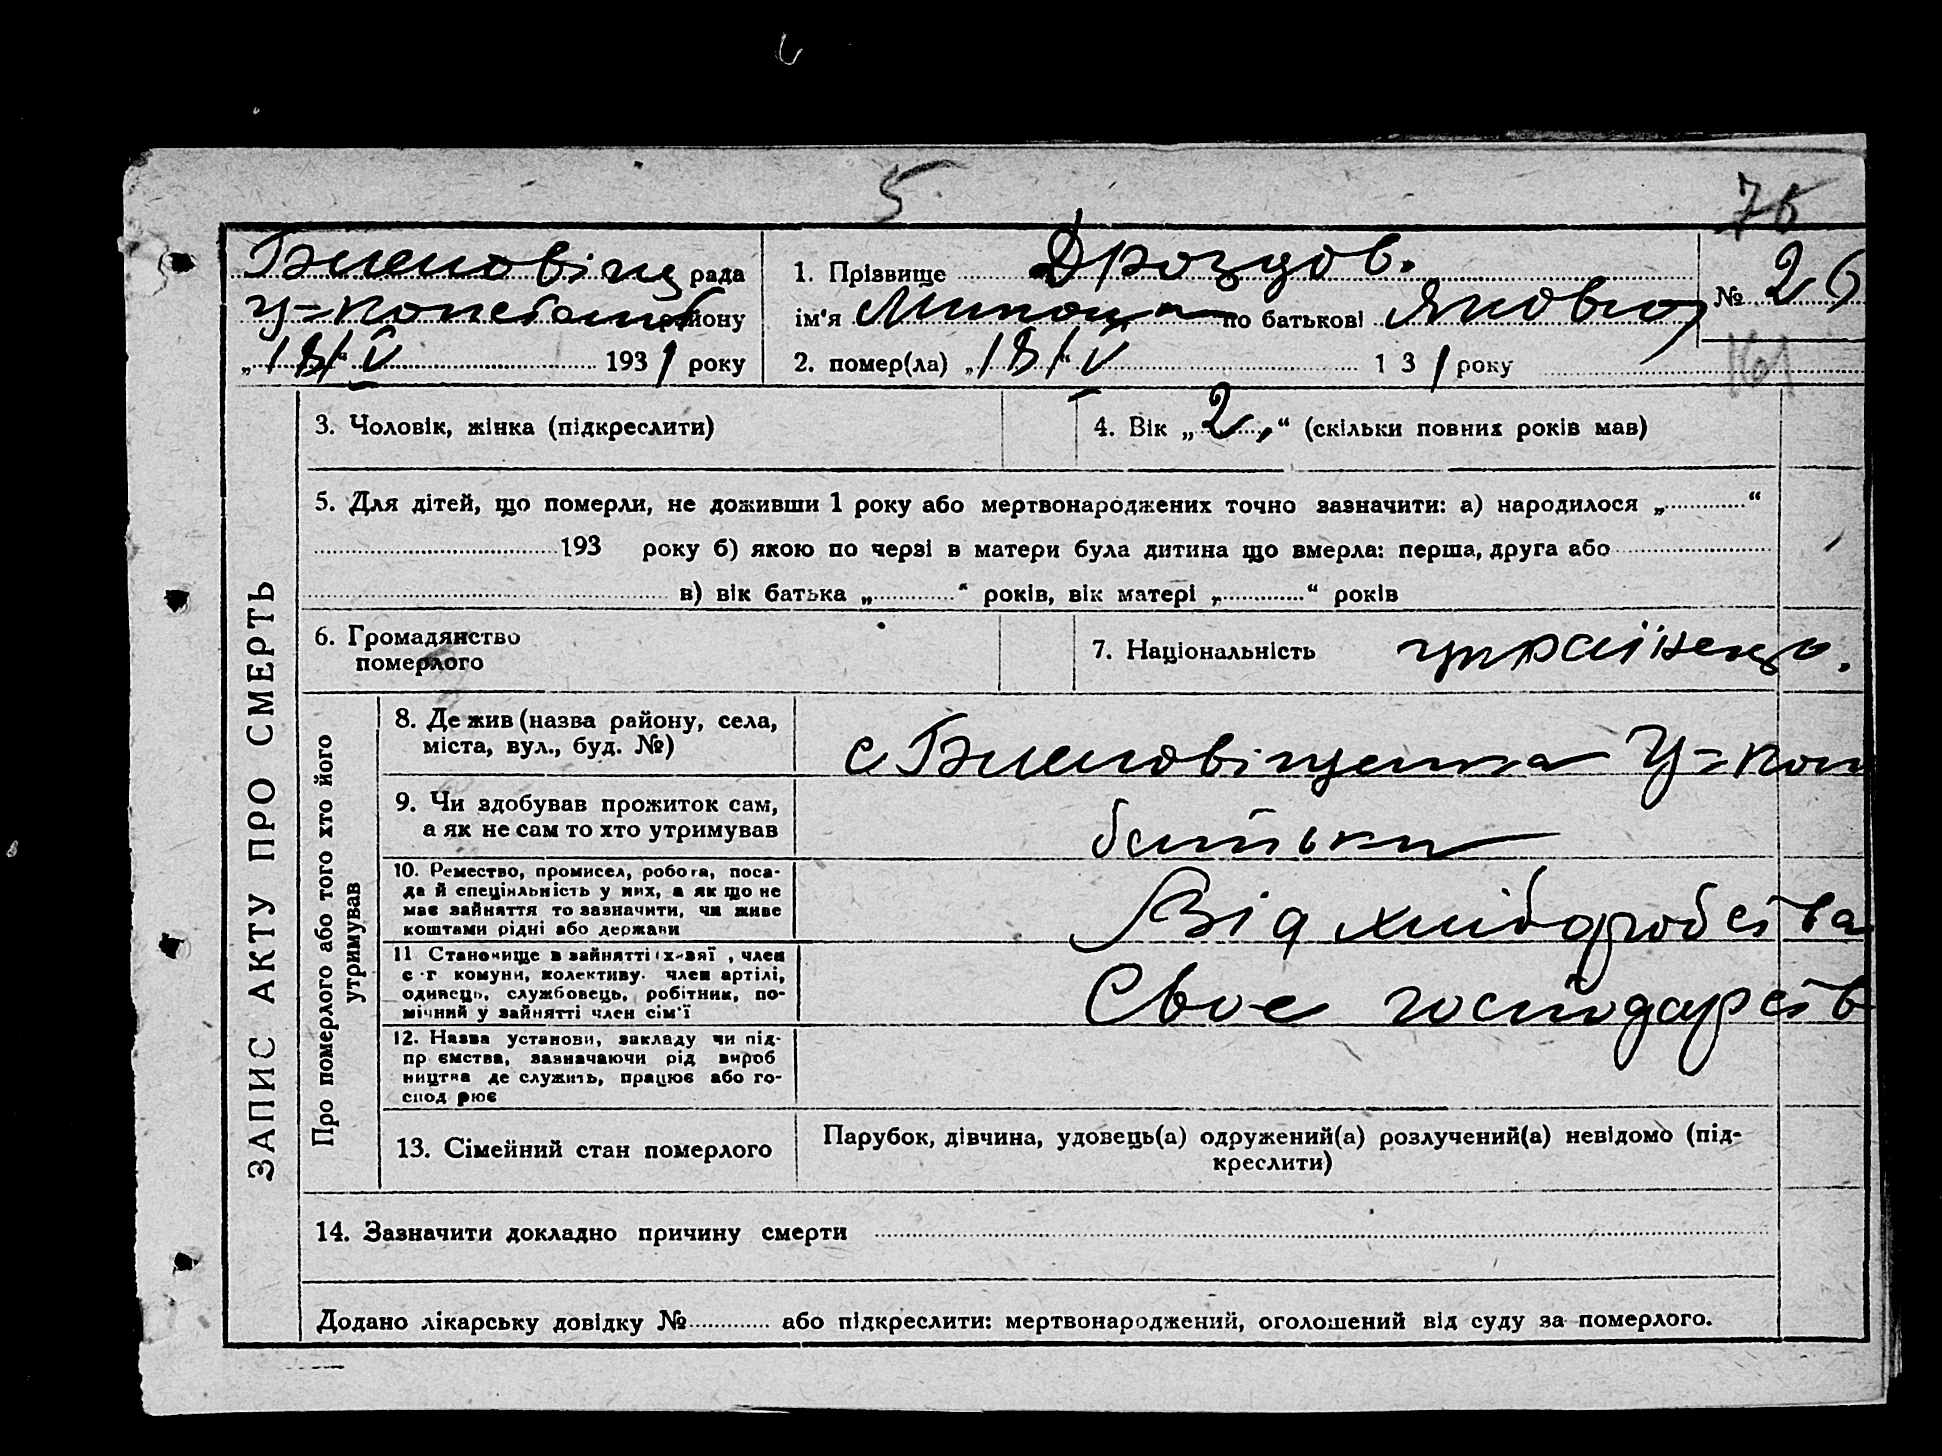 5
76
рада
району
„18“ V 1931 року
1. Прізвище Дроздов.
ім'я Микола по батькові Яковл
№ 26
2. помер(ла) „18“ V 1 31 року
161
ЗАПИС АКТУ ПРО СМЕРТЬ
3. Чоловік, жінка (підкреслити)
4. Вік „2“ (скільки повних років мав)
5. Для дітей, що померли, не доживши 1 року або мертвонароджених точно зазначити: а) народилося „ “
193 року б) якою по черзі в матери була дитина що вмерла: перша, друга або
в) вік батька „ “ років, вік матері „ “ років
6. Громадянство
померлого
7. Національність українець.
Про померлого або того хто його
утримував
8. Де жив (назва району, села,
міста, вул., буд. №)
с
9. Чи здобував прожиток сам,
а як не сам то хто утримував
батьки
10. Ремество, промисел, робота, поса-
да й спеціяльність у них, а як що не
має зайняття то зазначити, чи живе
коштами рідні або держави
Від хліборобства
11 Становище в зайнятті , член
с.-г комуни, колективу. член артілі,
одинець, службовець, робітник, по-
мічний у зайнятті член сім'ї
Своє господарств
12. Назва установи, закладу чи під-
пр ємства, зазначаючи рід вироб
ництва де служить, працює або го-
спод рює
13. Сімейний стан померлого
Парубок, дівчина, удовець(а) одружений(а) розлучений(а) невідомо (під-
креслити)
14. Зазначити докладно причину смерти
Додано лікарську довідку № або підкреслити: мертвонароджений, оголошений від суду за померлого.